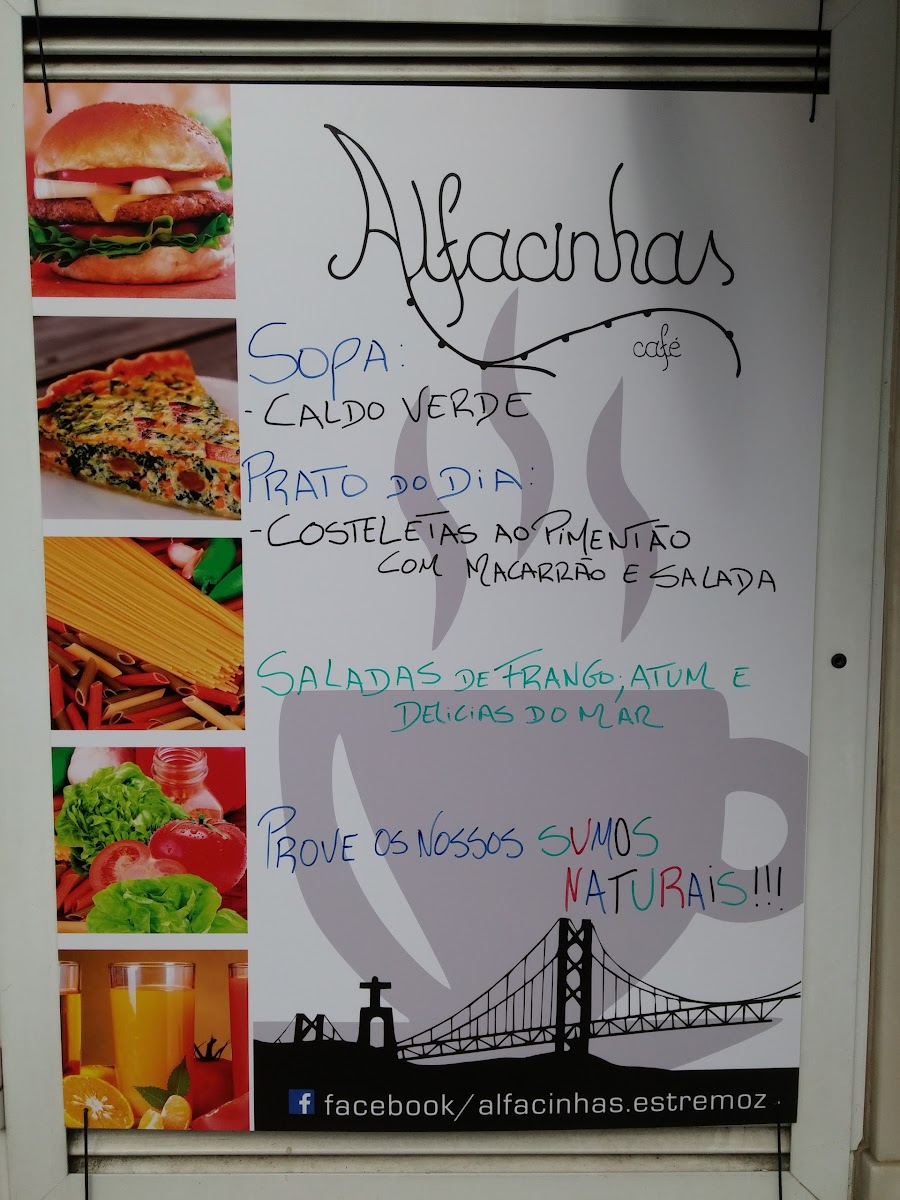 Alfacinhas
café
SOPA:
- CALDO VERDE
PRATO DO DIA:
- COSTELETAS AO PIMENTÃO
COM MACARRÃO E SALADA
SALADAS DE FRANGO; ATUM E
DELICIAS DO MAR
PROVE OS NOSSOS SUMOS
NATURAIS!!!
f facebook/alfacinhas.estremoz